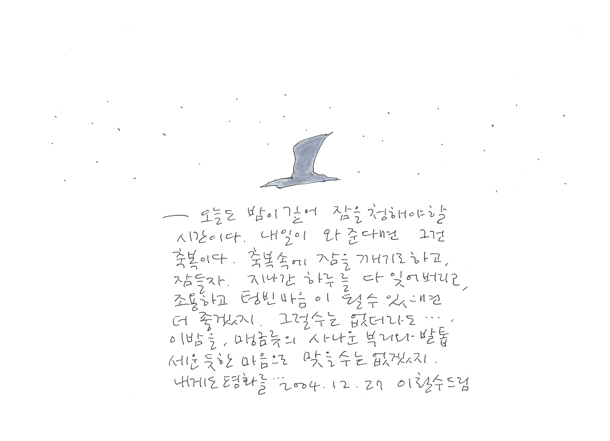 — 오늘도 밤이 깊어 잠을 청해야 할
시간이다. 내일이 와 준다면 그건
축복이다. 축복속에 잠을 깨기로하고,
잠들자. 지나간 하루를 다 잊어버리고,
조용하고 텅빈 마음이 될 수 있다면
더 좋겠지. 그럴수는 없더라도 …,
이밤을, 매금류의 사나운 부리와 발톱
세운듯한 마음으로 맞을수는 없겠지.
내게도 평화를… 2004.12.27 이철수드림